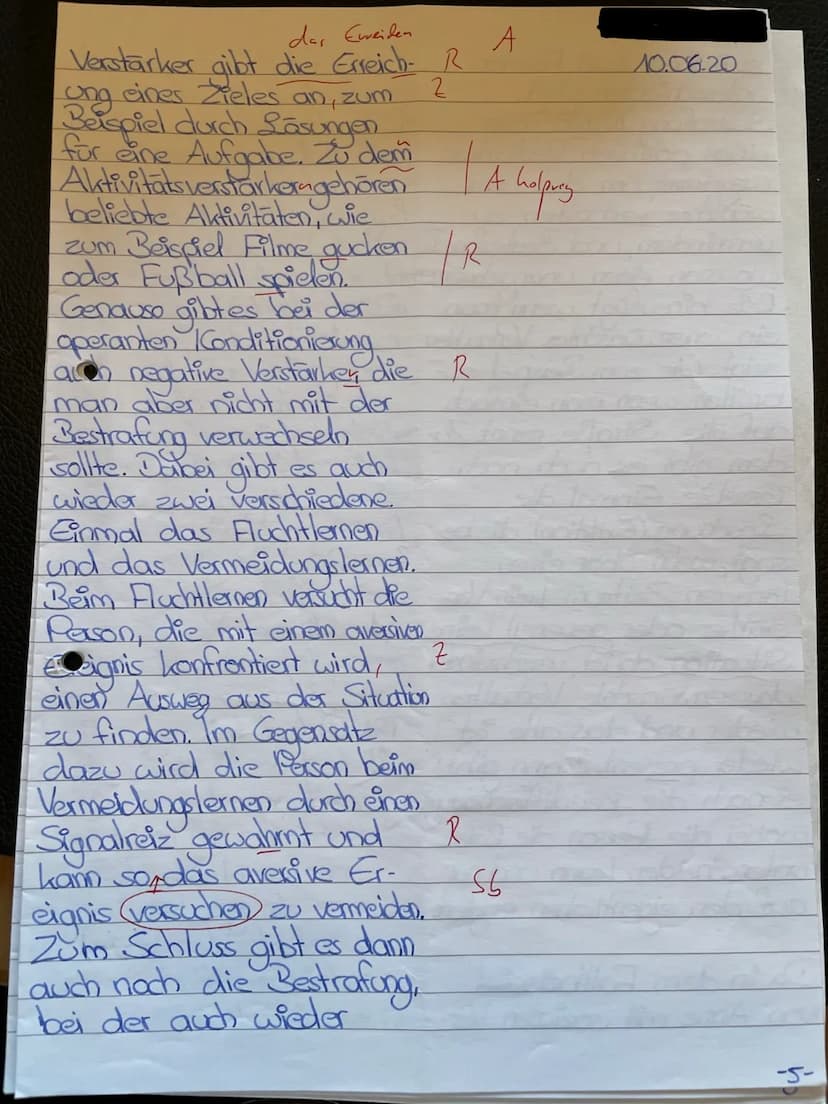 das Erreichen
A
Verstärker gibt die Erreich- R
10.06.20
ung eines Zieles an, zum Z
Beispiel durch Lösungen
für eine Aufgabe. Zu dem n
Aktivitätsverstärkern gehören A holprig
beliebte Aktivitäten, wie
zum Beispiel Filme gucken R
oder Fußball spielen.
Genauso gibt es bei der
operanten Konditionierung
auch negative Verstärker, die R
man aber nicht mit der
Bestrafung verwechseln
sollte. Dabei gibt es auch
wieder zwei verschiedene.
Einmal das Fluchtlernen
und das Vermeidungslernen.
Beim Fluchtlernen versucht die
Person, die mit einem aversiven
Ereignis konfrontiert wird, Z
einen Ausweg aus der Situation
zu finden. Im Gegensatz
dazu wird die Person beim
Vermeidungslernen durch einen
Signalreiz gewahrnt und R
kann so das aversive Er- Sb
eignis versuchen zu vermeiden.
Zum Schluss gibt es dann
auch noch die Bestrafung,
bei der auch wieder
-5-